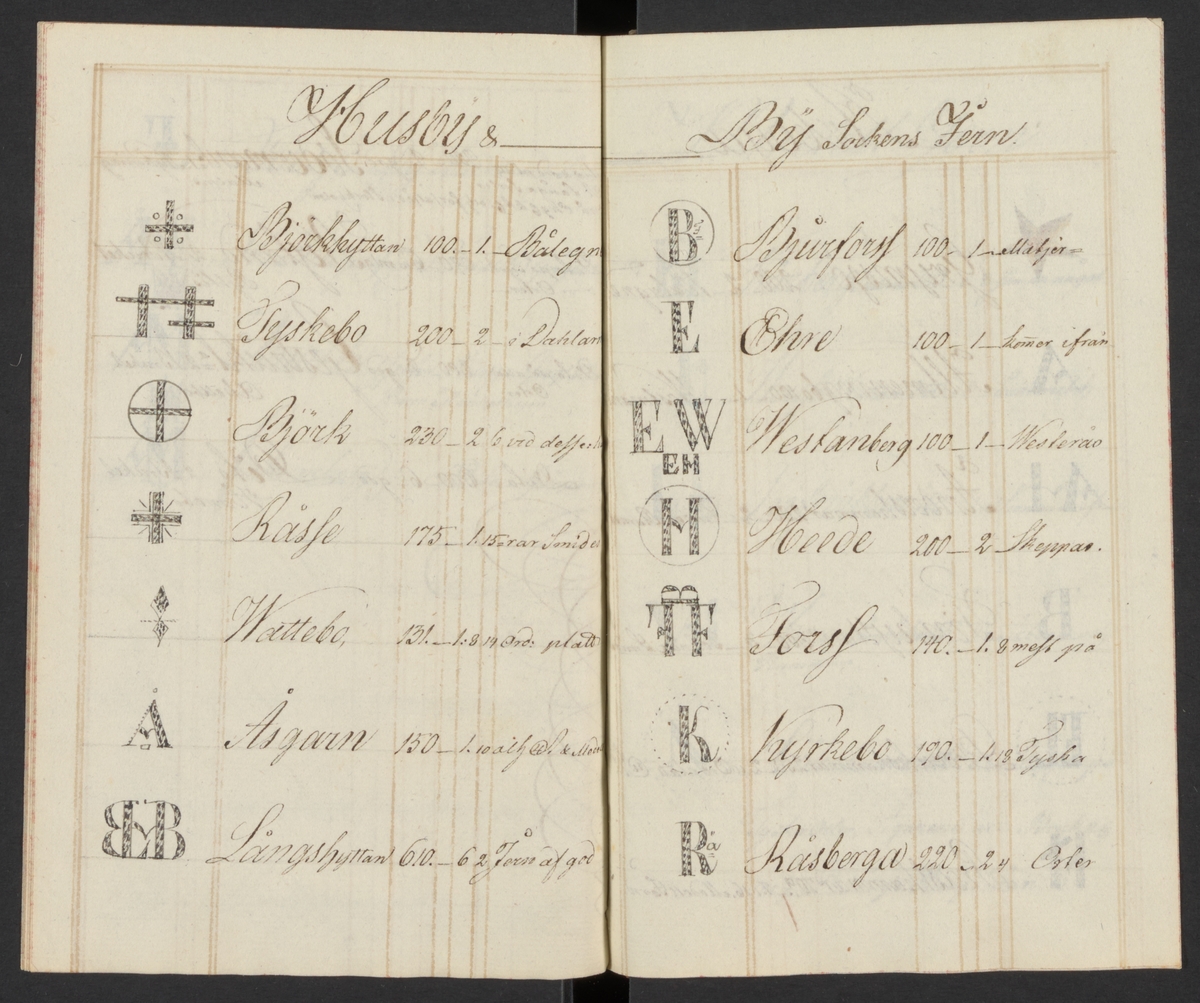 Husbÿ &
Björkhyttan 100.-1.- Bålegn
Tyskebo 200-2- i Dahlan
Björk 230-2 6 vid dessen
Råsse 175-1.15 rar Smide
Wattebo, 131.-1.8.14 Ord: plått
Å
Åsgarn 150-1.10
BMB
Långshyttan 610.-6 2 Jern af god
Bÿ Sockens Jern.
B
Bjurforss 100-1-
E
Ehre 100-1- komer ifrån
EW
EM
Westanberg 100-1- Westeråo
H
Heede 200-2- Skeppas.
Forss 140.-1.8 mest på
K.
Kyrkebo 190.-1.18 Tyska
Rå
Råsberga 220-2 4 Orter